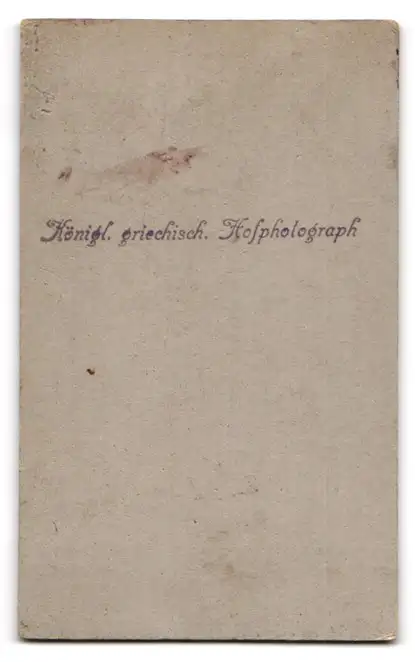 Königl. griechisch. Hofphotograph